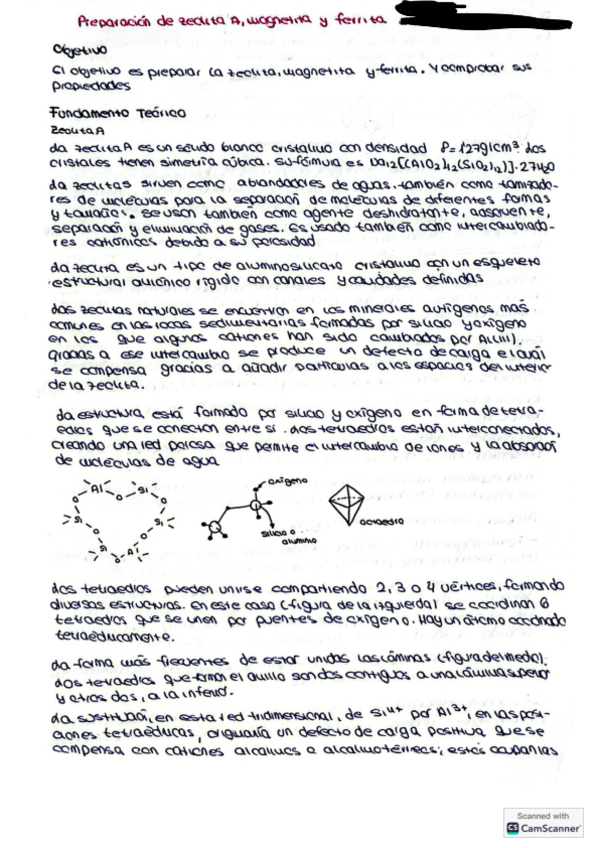 Preparación de zeolita A, magnetita y ferrita
Objetivo
El objetivo es preparar la zeolita, magnetita y ferrita. Y comprobar sus
propiedades
Fundamento Teórico
Zeolita A
La zeolita A es un sólido blanco cristalino con densidad ρ=1'27g/cm³. Los
cristales tienen simetría cúbica. Su fórmula es Na12[(AlO2)12(SiO2)12)]·27H2O
La zeolitas sirven como ablandadores de aguas. También como tamizado-
res de moléculas para la separación de moléculas de diferentes formas
y tamaños. Se usan también como agente deshidratante, adsorvente,
separación y eliminación de gases. Es usado también como intercambiado-
res catiónicos debido a su porosidad
La zeolita es un tipo de aluminosilicato cristalino con un esqueleto
estructural aniónico rígido con canales y cavidades definidas
Las zeolitas naturales se encuentran en los minerales autígenos más
comunes en las rocas sedimentarias formadas por silicio y oxígeno
en los que algunos cationes han sido cambiados por Al(III).
gracias a ese intercambio se produce un defecto de carga el cuál
se compensa gracias a añadir partículas a los espacios del interior
de la zeolita.
La estructura está formado por silicio y oxígeno en forma de tetra-
edros que se conectan entre si. Los tetraedros están interconectados,
creando una red porosa que permite el intercambio de iones y la absorción
de moléculas de agua
Al O Si O Si O Al O Si O Si O
oxígeno
silicio o
aluminio
octaedro
Los tetraedros pueden unirse compartiendo 2, 3 o 4 vértices, formando
diversas estructuras. En este caso (figura de la izquierda) se coordinan 6
tetraedros que se unen por puentes de oxígeno. Hay un átomo coordinado
tetraédricamente.
La forma más frecuentes de estar unidas las láminas (figura del medio).
Los tetraedros que forman el anillo son dos contiguos a una lámina superior
y otros dos, a la inferio.
La sustitución, en esta red tridimensional, de Si4+ por Al3+, en las posi-
ciones tetraédricas, originaría un defecto de carga positiva que se
compensa con cationes alcalinos o alcalinotérreos; estos ocupan las
Scanned with
CS CamScanner